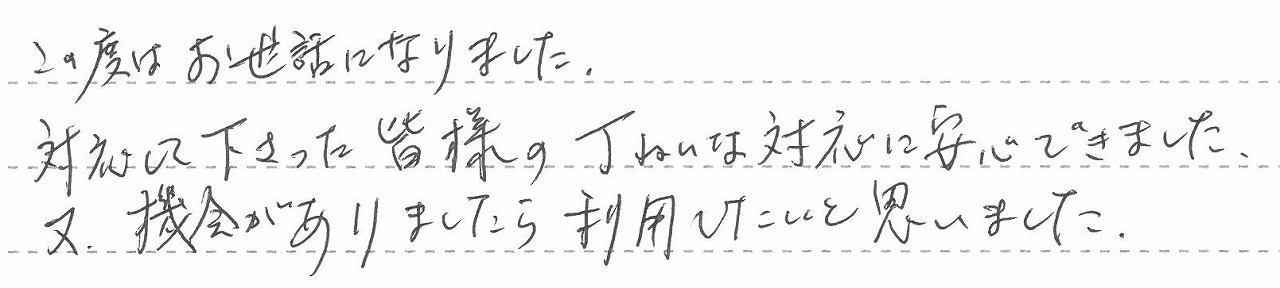 この度はお世話になりました.
対応して下さった皆様の丁ねいな対応に安心できました、
又、機会がありましたら利用したいと思いました.